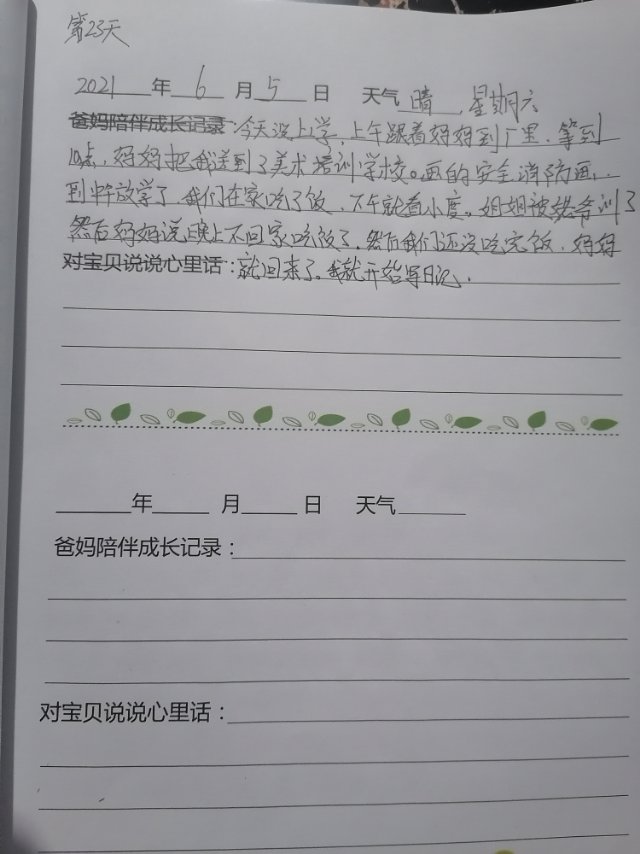 第23天
2021年6月5日 天气晴 星期六
爸妈陪伴成长记录:今天没上学,上午跟着妈妈到厂里,等到
10点,妈妈把我送到了美术培训学校。画的安全消防画,
到中午放学了,我们在家吃了饭,下午就看小度。姐姐被培训了
然后妈妈说晚上不回家吃饭了,然后我们还没吃完饭,妈妈
对宝贝说说心里话:就回来了。我就开始写日记.
年 月 日 天气
爸妈陪伴成长记录:
对宝贝说说心里话: